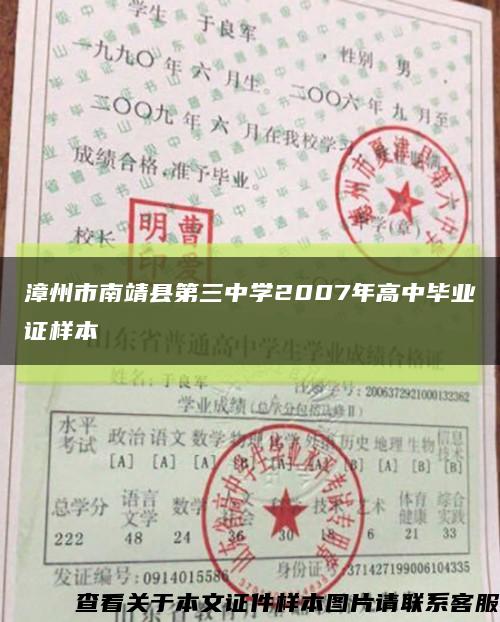 学生 于良军 ，性别 男
一九九〇 年 六 月生。二〇〇六 年 九 月至
二〇〇九 年 六 月在我校学习
成绩合格，准予毕业。
德州市夏津县第六中学
学(章)
校长
曹爱明印
漳州市南靖县第三中学2007年高中毕业
证样本
山东省普通高中学生学业成绩合格证
姓名：于良军 号：2006372921000132362
学业成绩（总学分包括选修Ⅱ）
水平考试 政治 语文 数学 物理 化学 外语 历史 地理 生物 信息技术
[A] [A] [A] [B] [A] [B] [B]
总学分 语言文学 数学 技术 艺术 体育健康 综合实践
222 48 24 36 30 18 6 21 33
发证编号：0914015586 身份证号：371427199006104335
查看关于本文证件样本图片请联系客服